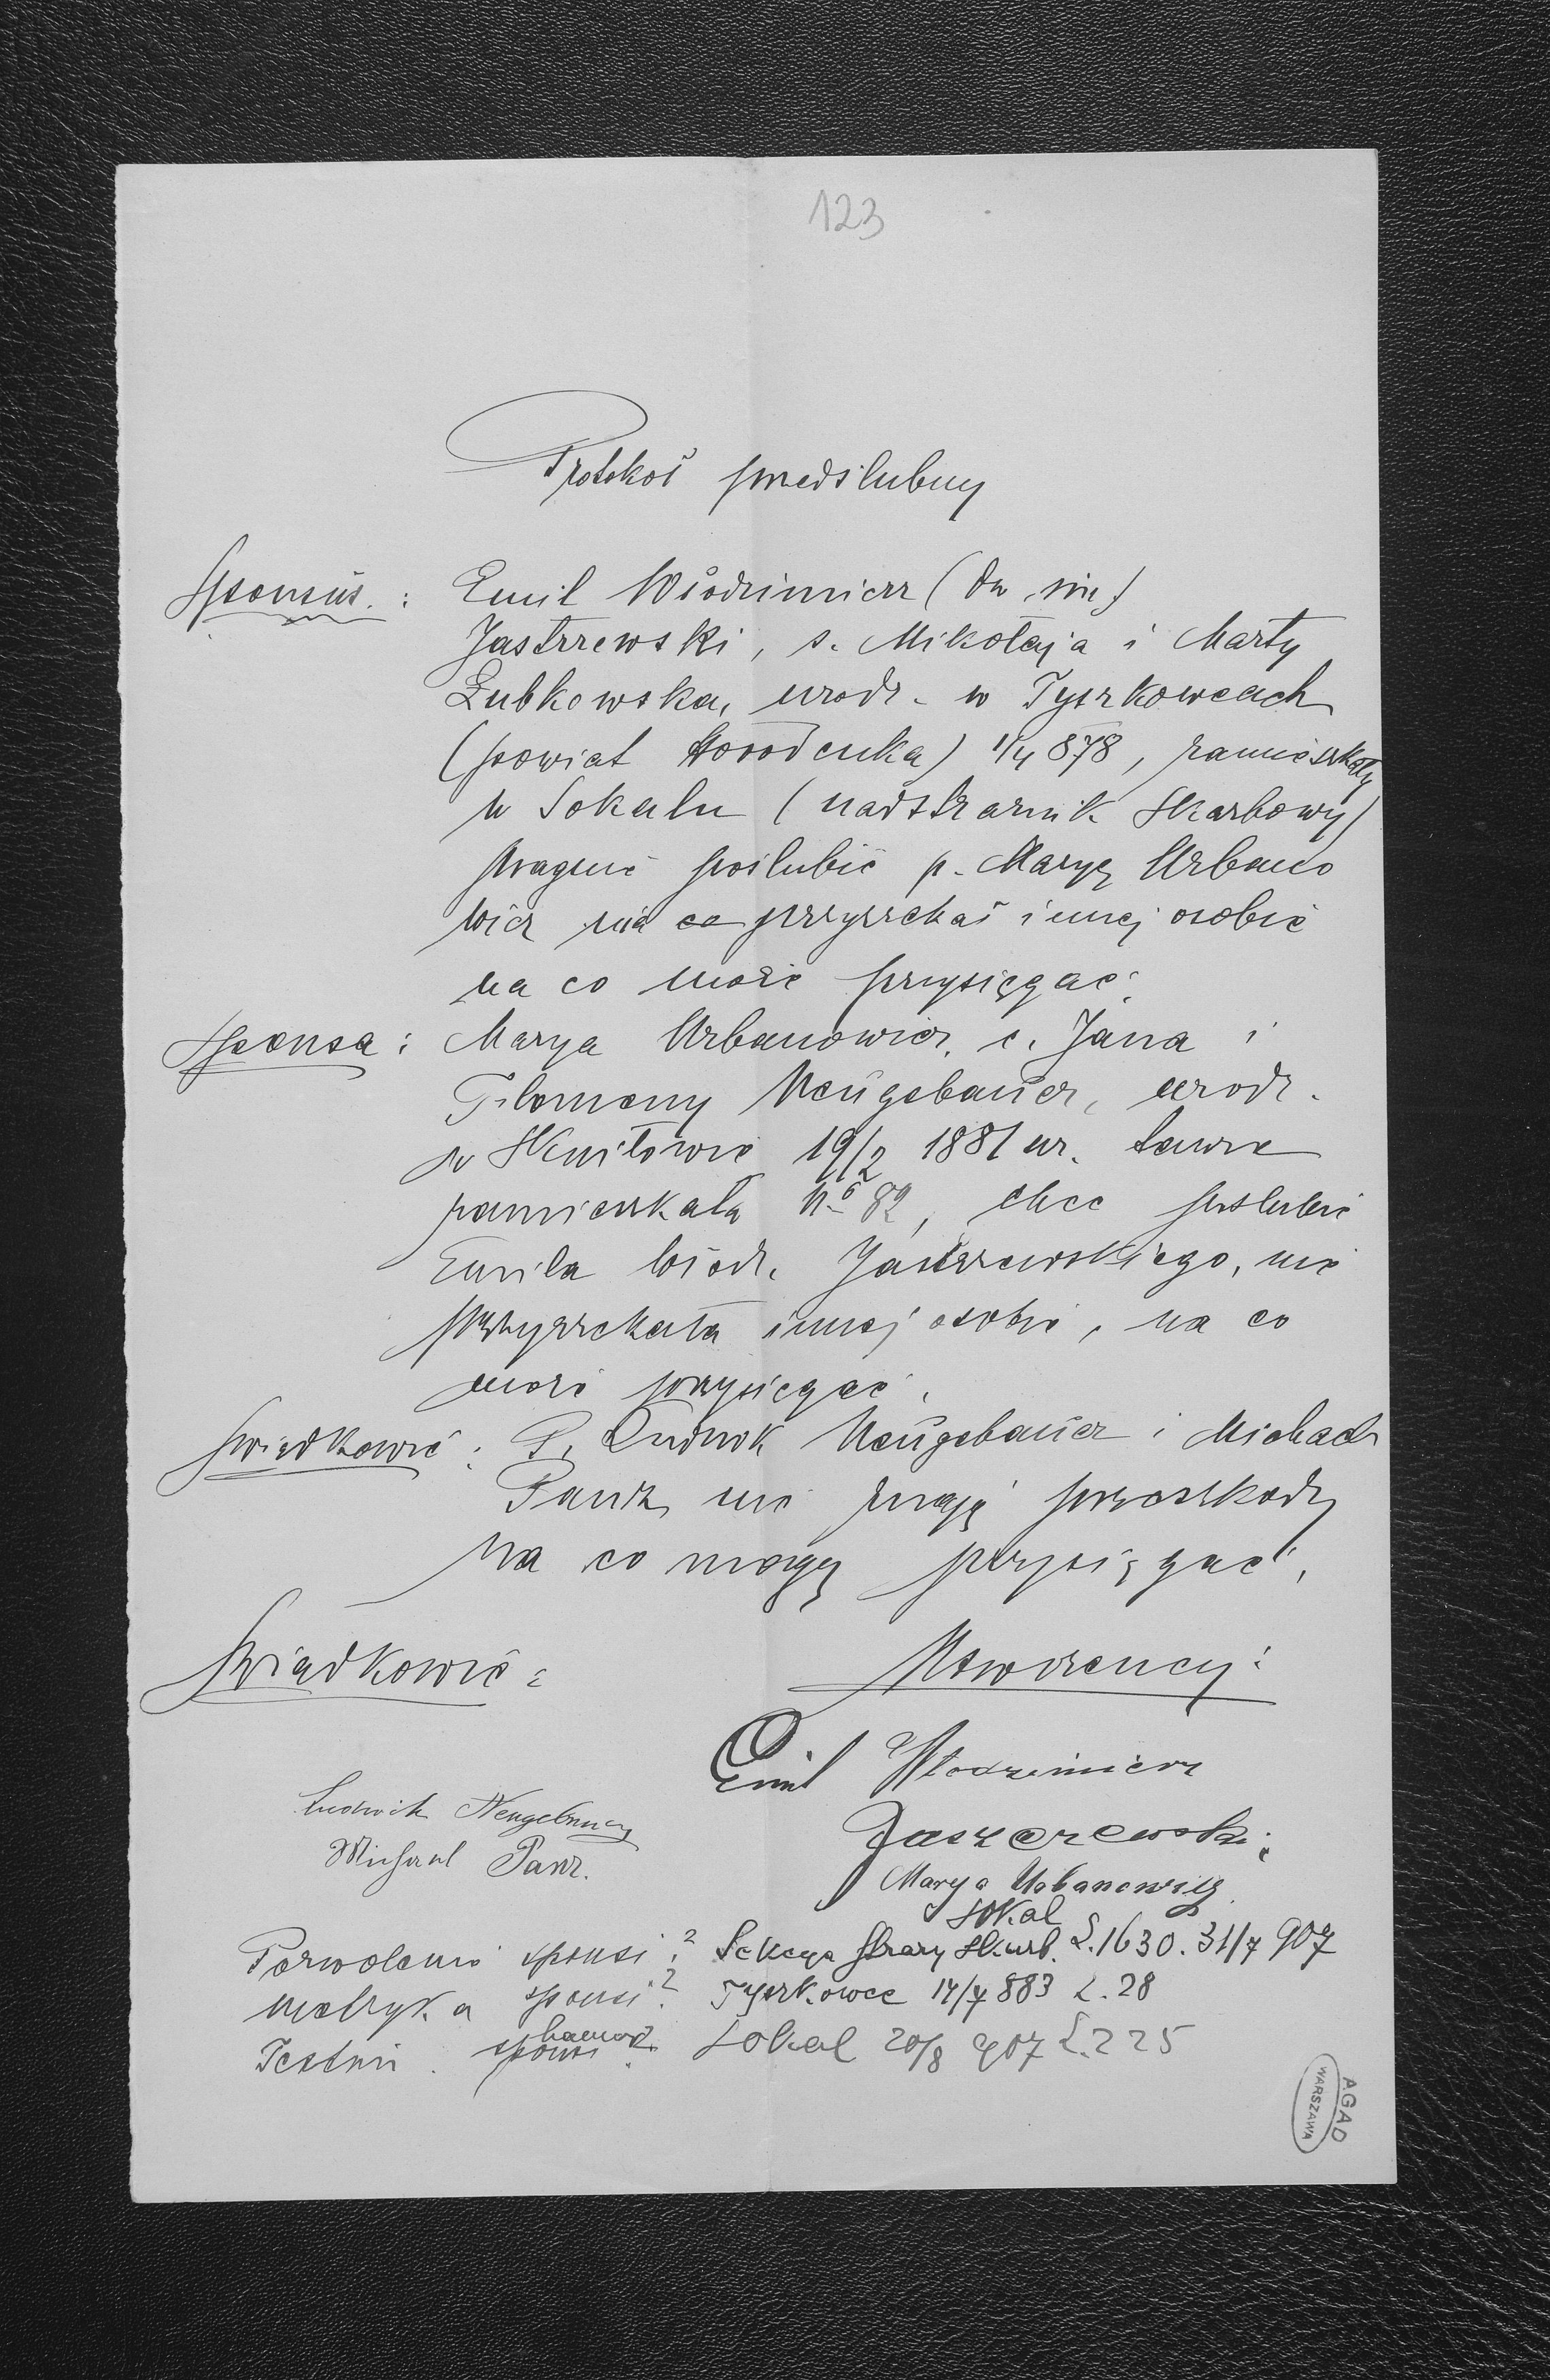 123
Protokół przedślubny
Sponsus: Emil Włodzimierz (dw. im.)
Jastrzewski, s. Mikołaja i Marty
Łubkowska, urodz. w Tyszkowcach
(powiat Horodenka) 1/4 878, zamieszkały
w Sokalu (nadstrażnik skarbowy)
pragnie poślubić p. Maryę Urbano
wicz nie co przyrzekał innej osobie
na co może przysięgać.
Sponsa: Marya Urbanowicz, c. Jana i
Filomeny Neugebauer, urodz.
w Skniłowie 19/2 1881 ur. tamże
zamieszkała No 82, chce poślubić
Emila Włodz. Jastrzewskiego, nie
przyrzekała innej osobie, na co
może przysięgać.
Świadkowie: P. Ludwik Neugebauer i Michael
Panz nie znają przeszkody
na co mogą przysięgać,
Świadkowie: Narzeczeni:
Emil Włodzimierz
Ludwik Neugebauer
Jaszczrewski
Michael Panz.
Marya Urbanowicz
Sokal
Pozwolenie sponsi? Sekcya Straży Skarb. L. 1630. 31/7 907
Metryka sponsi? Tyszkowce 14/7 883 L. 28
Testim. sponsi Sokal 20/8 907 L. 225
AGAD
WARSZAWA